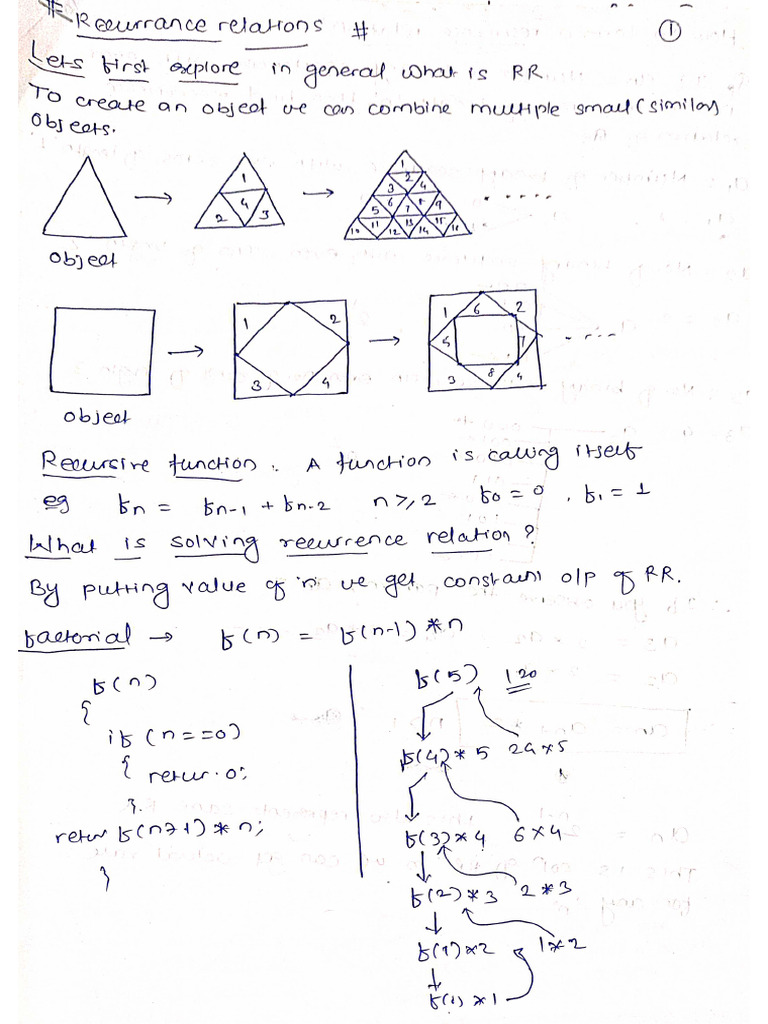 # Recurrance relations #
①
Lets first explore in general what is RR.
To create an object we can combine multiple small (similar)
objects.
1
2 4 3
1
2
3 4
6 8
5 7 9
11 13 15
10 12 14 16
.....
object
1 2
3 4
1 6 2
5 7
3 8 4
....
object
Recursive function. A function is calling itself
eg fn = fn-1 + fn-2 n>,2 f0 = 0, f1 = 1
What is solving recurrence relation?
By putting value of 'n' we get constant o/p of RR.
factorial → f(n) = f(n-1) * n
f(n)
{
if (n==0)
{ retur. 0;
}.
retur f(n-1) * n;
}
f(5) 120
f(4) * 5 24 x 5
f(3) * 4 6 x 4
f(2) * 3 2 * 3
f(1) x 2 1 * 2
x 1